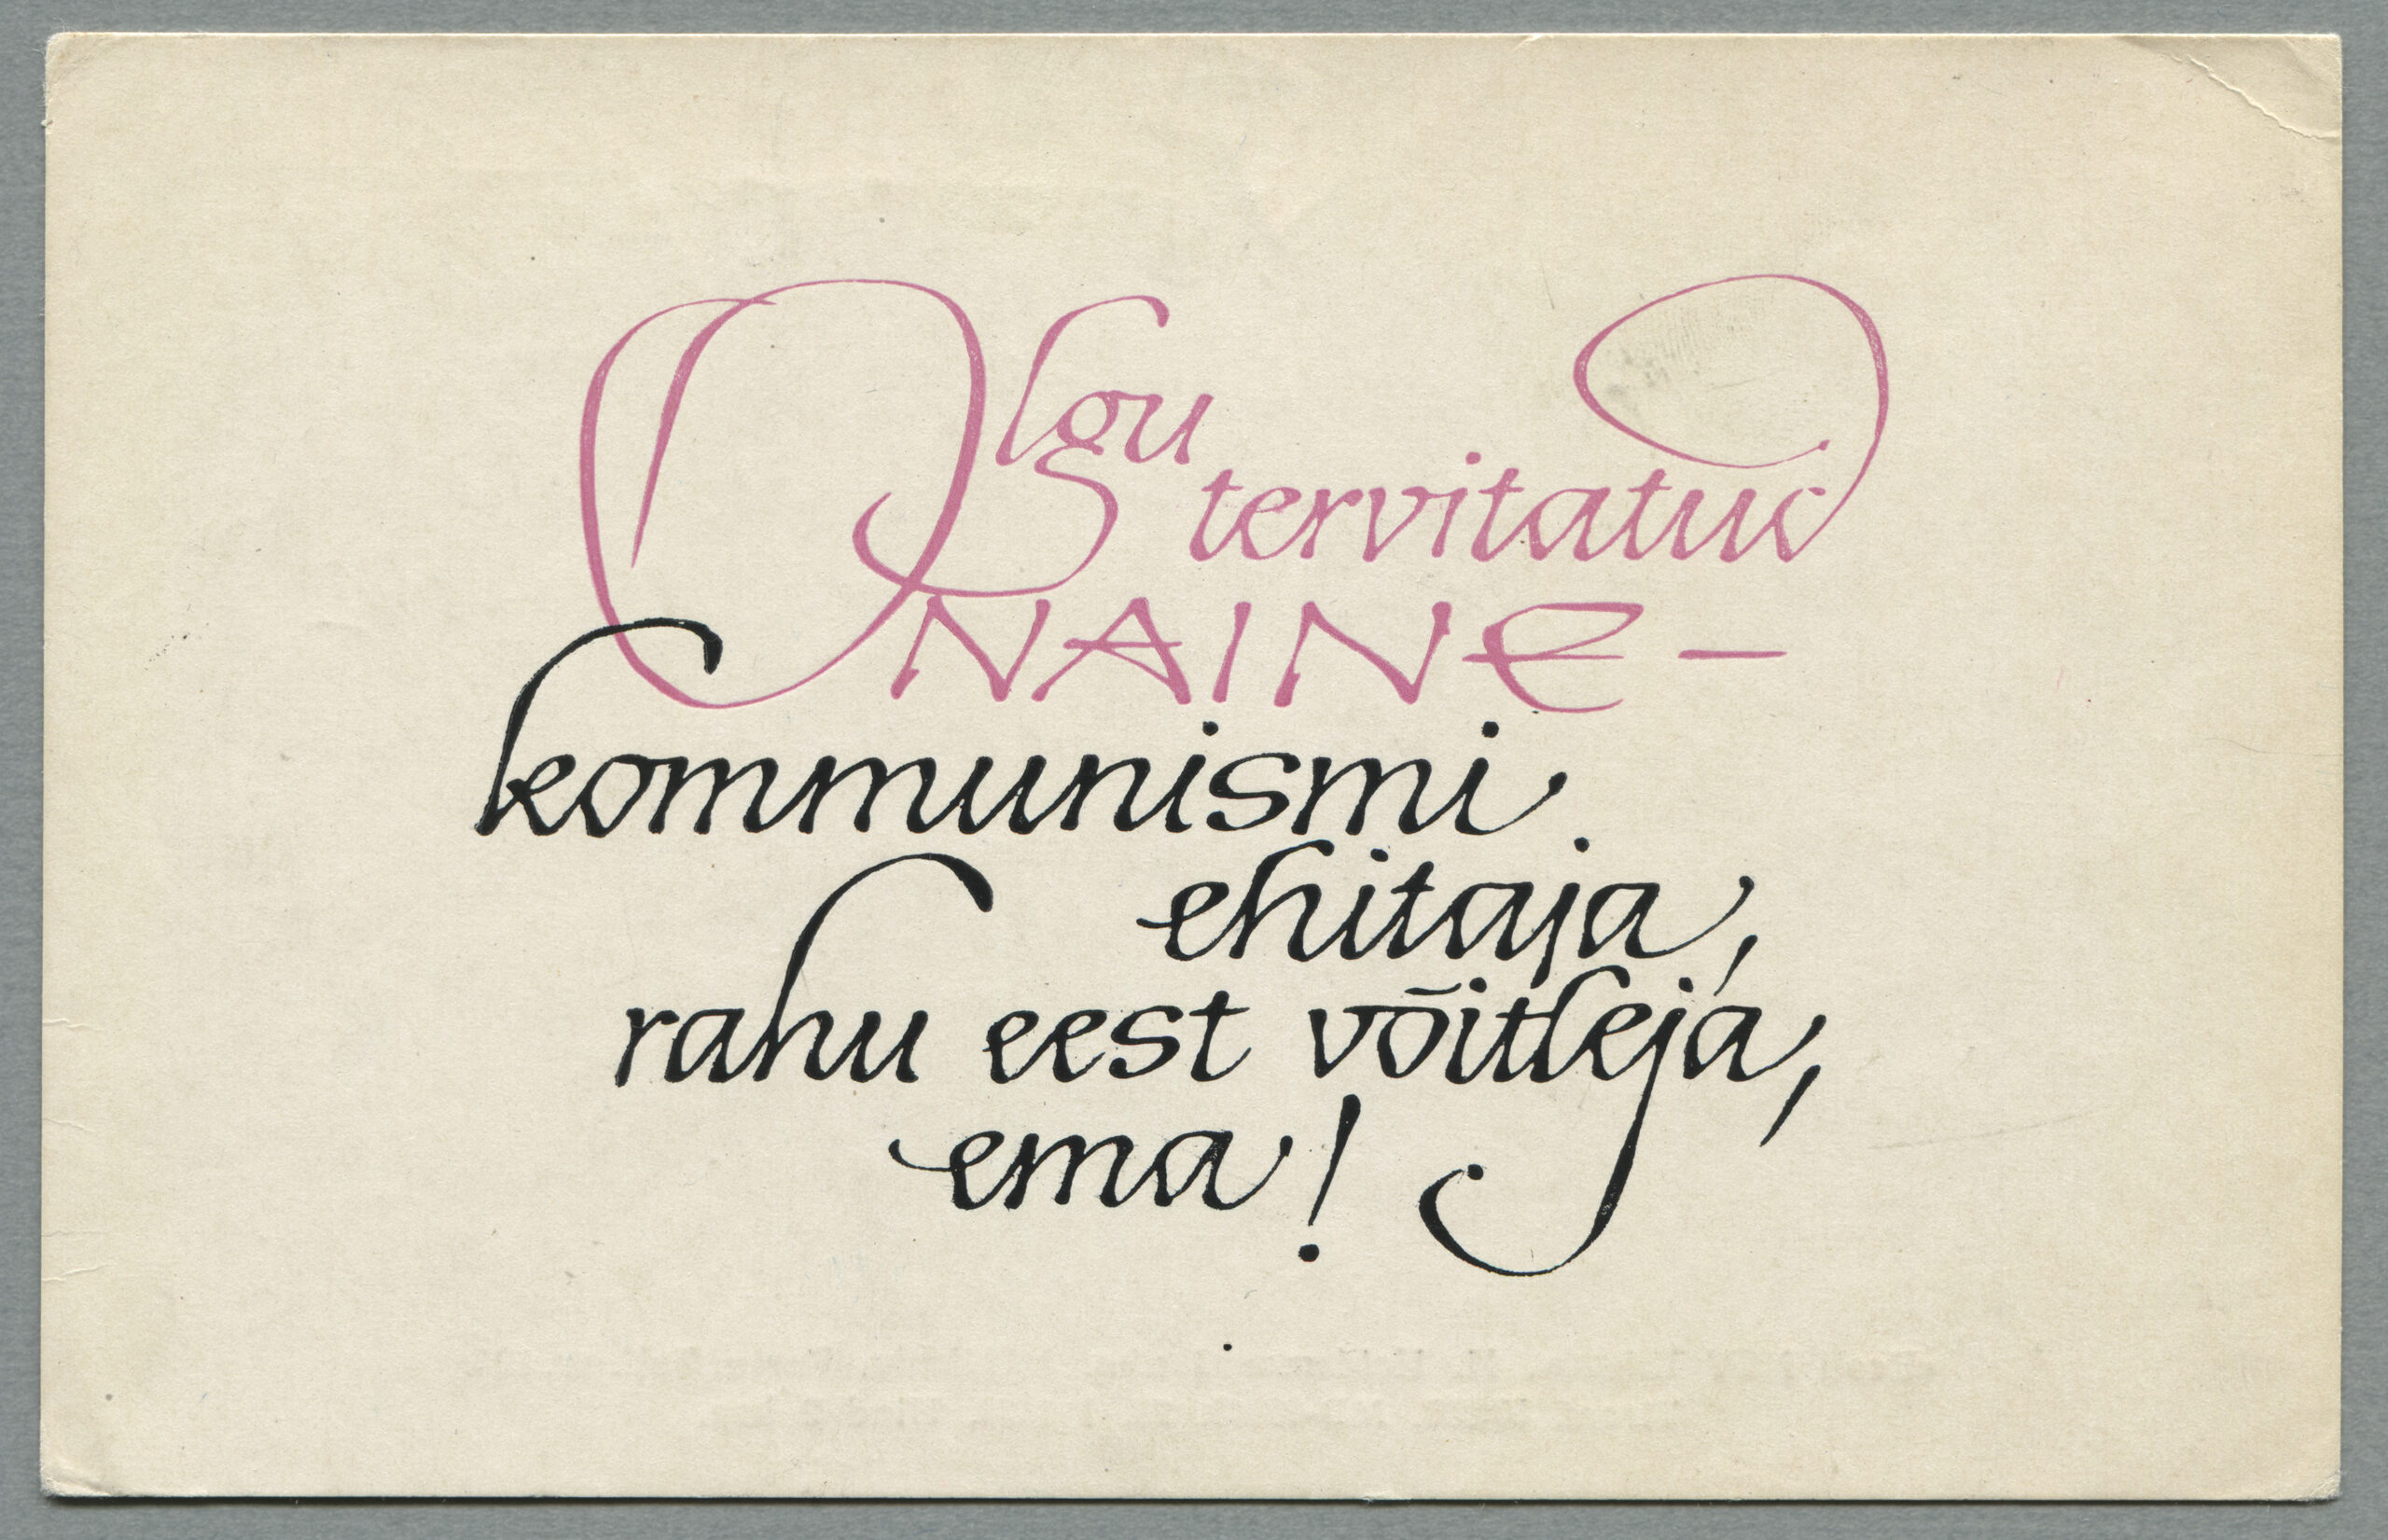 Olgu
tervitatud
NAINE –
kommunismi
ehitaja,
rahu eest võitleja,
ema!